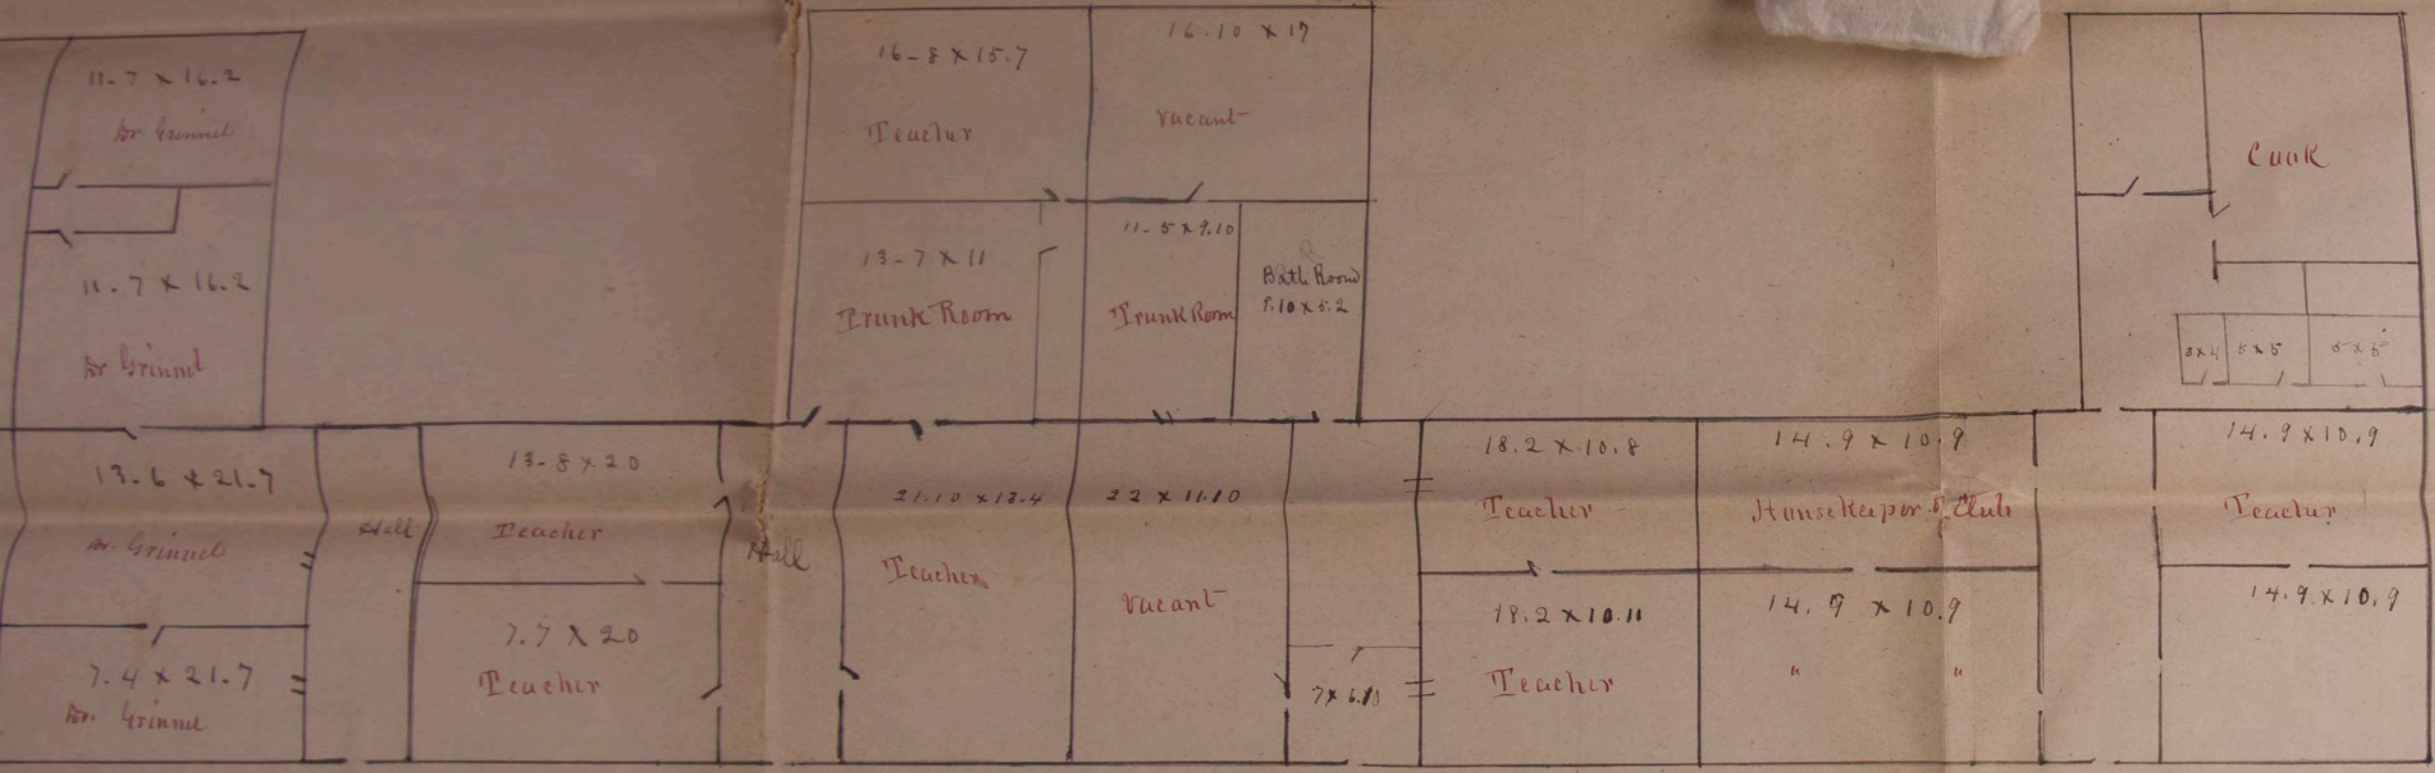 11.7 x 16.2
Dr Grinnel
11.7 x 16.2
Dr Grinnel
13.6 x 21.7
Dr. Grinnel
7.4 x 21.7
Dr. Grinnel
Hall
13-8 x 20
Teacher
7.7 x 20
Teacher
Hall
16-8 x 15.7
Teacher
16.10 x 17
vacant
13-7 x 11
Trunk Room
11-5 x 9.10
Trunk Room
Bath Room
9.10 x 5.2
21.10 x 13.4
Teacher
22 x 11.10
vacant
7 x 6.10
18.2 x 10.8
Teacher
18.2 x 10.11
Teacher
14.9 x 10.9
Housekeeper of Club
14.9 x 10.9
" "
Cook
3 x 4
5 x 5
5 x 5
14.9 x 10.9
Teacher
14.9 x 10.9